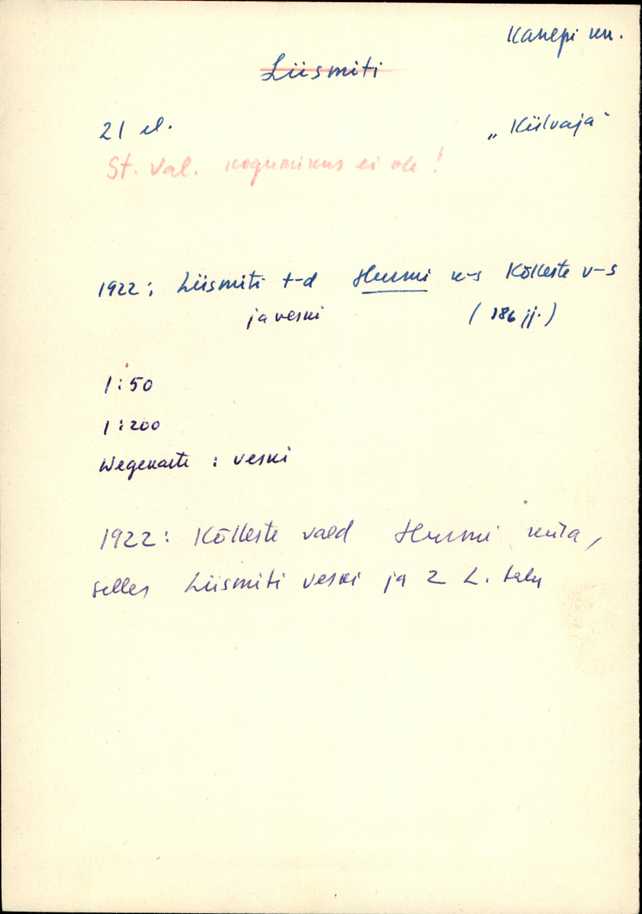 Kanepi kn.
Liismiti
21 el.
„Külvaja"
St. Val. kogumikus ei ole!
1922: Liismiti t-d Hurmi k-s Kõlleste v-s
ja veski (186 jj.)
1:50
1:200
Wegekarte : veski
1922: Kõlleste vald Hurmi küla,
selles Liismiti veski ja 2 L. talu